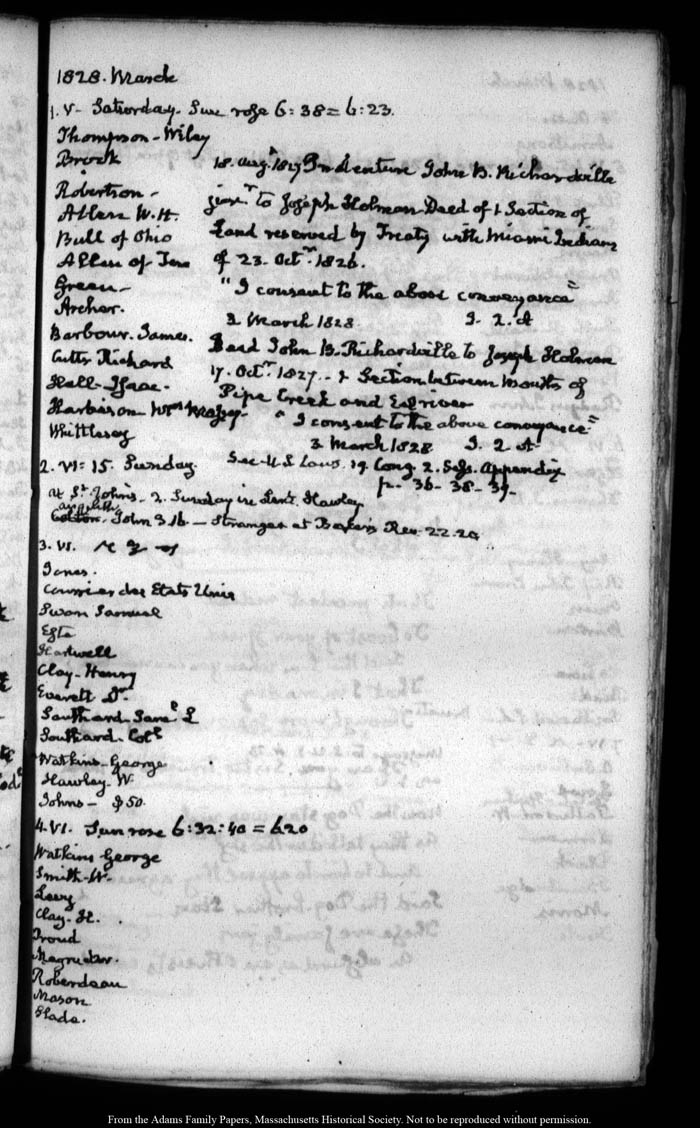 1828. March
1. V- Saturday. Sun rose 6:38 = 6:23.
Thompson - Wiley
Brock
Robertson -
Allen W. H.
Bull of Ohio
Allen of Ten
Green -
Archer.
Barbour. James.
Cutts Richard
Hall - Isaac.
Harbison Wm
Whittlesey
18. Augt. 1827 Indenture John B. Richardville
junr. to Joseph Holman Deed of 1 Section of
Land reserved by Treaty with Miami Indians
of 23. Octr. 1826.
"I consent to the above conveyance"
3 March 1828 J. Q. A
Deed John B. Richardville to Joseph Holman
17. Octr. 1827. - 1 Section between mouths of
Pipe Creek and Eel river
"I consent to the above conveyance"
3 March 1828 J. Q. A.
See U.S Laws. 19. Cong. 2. Sess. Appendix
p. 36 - 38 - 39 -
2. VI: 15. Sunday.
at St. Johns. 2. Sunday in Lent. Hawley
John 3.16. - Stranger at Baker's Rev. 22.20
3. VI.
Jones.
Courrier des Etats Unis
Swan Samuel
Hartwell
Clay - Henry
Everett Dr.
Southard - Saml L
Southard - Coll
Watkins - George
Hawley. W
Johns - $50.
4. VI. Sun rose 6:32:40 = 6.20
Watkins George
Smith - W.
Levy
Clay - H.
Proud
Magruder.
Roberdeau
Mason
Slade.
From the Adams Family Papers, Massachusetts Historical Society. Not to be reproduced without permission.